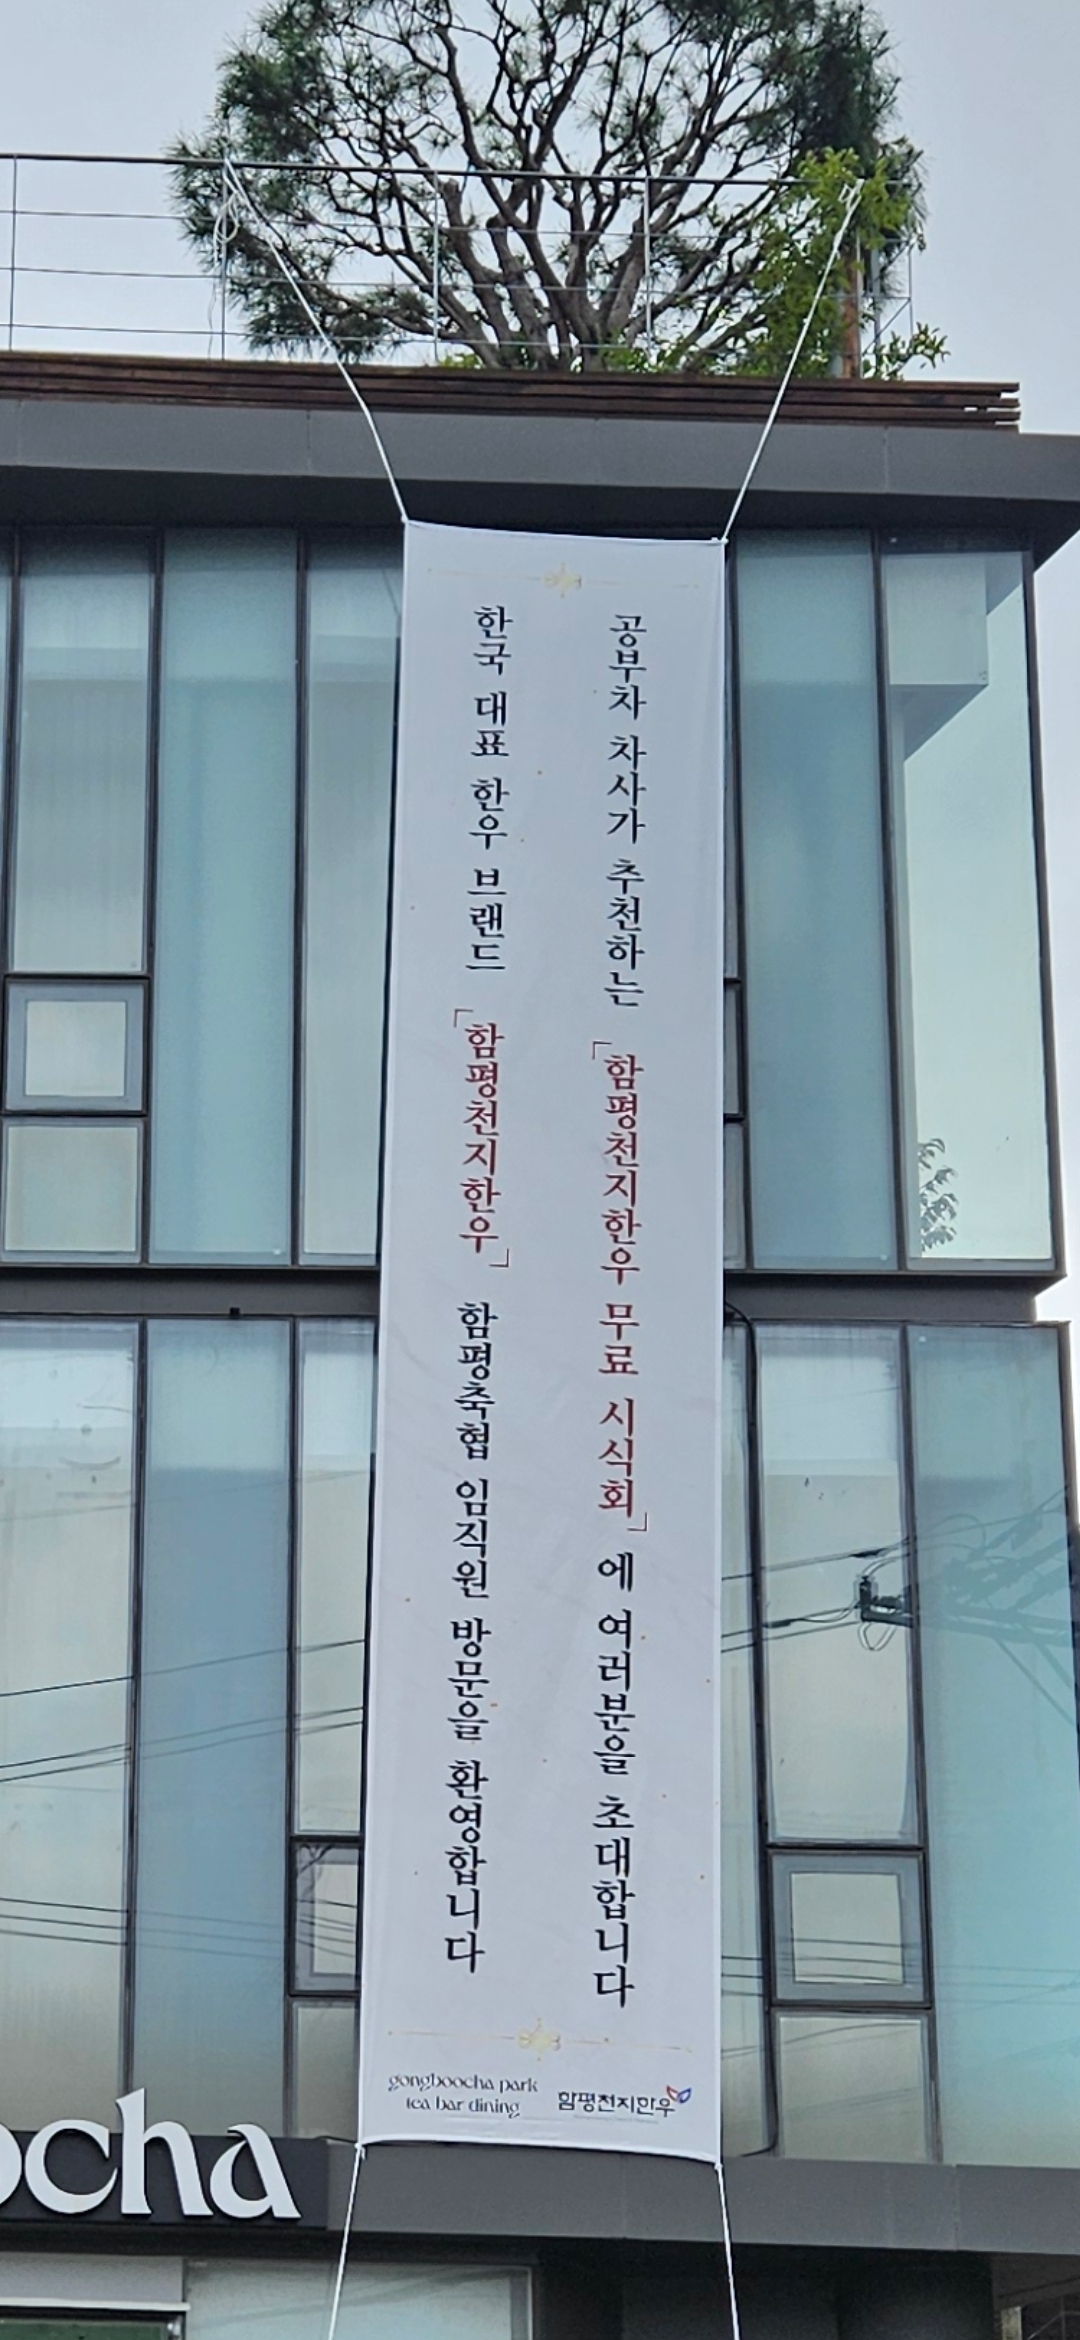 공부차 차사가 추천하는 「함평천지한우 무료 시식회」에 여러분을 초대합니다
한국 대표 한우 브랜드 「함평천지한우」 함평축협 임직원 방문을 환영합니다
gongboocha park
tea bar dining
함평천지한우
ocha